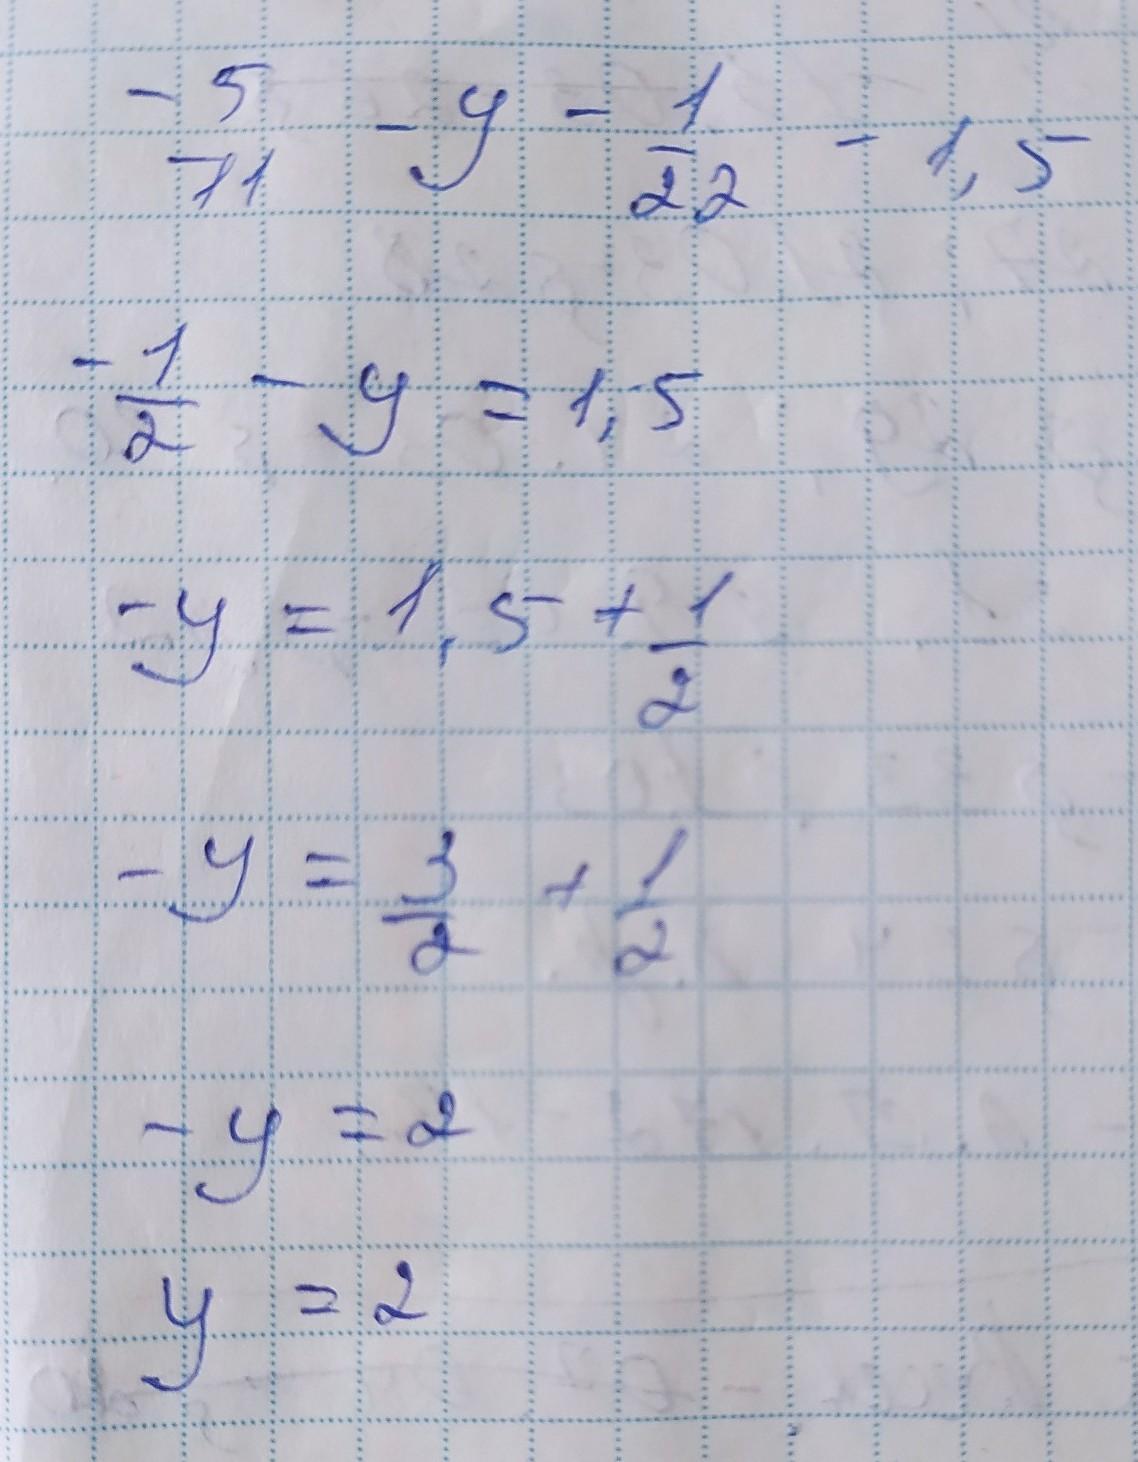 -5/11 - y - 1/22 - 1,5
-1/2 - y = 1,5
-y = 1,5 + 1/2
-y = 3/2 + 1/2
-y = 2
y = 2